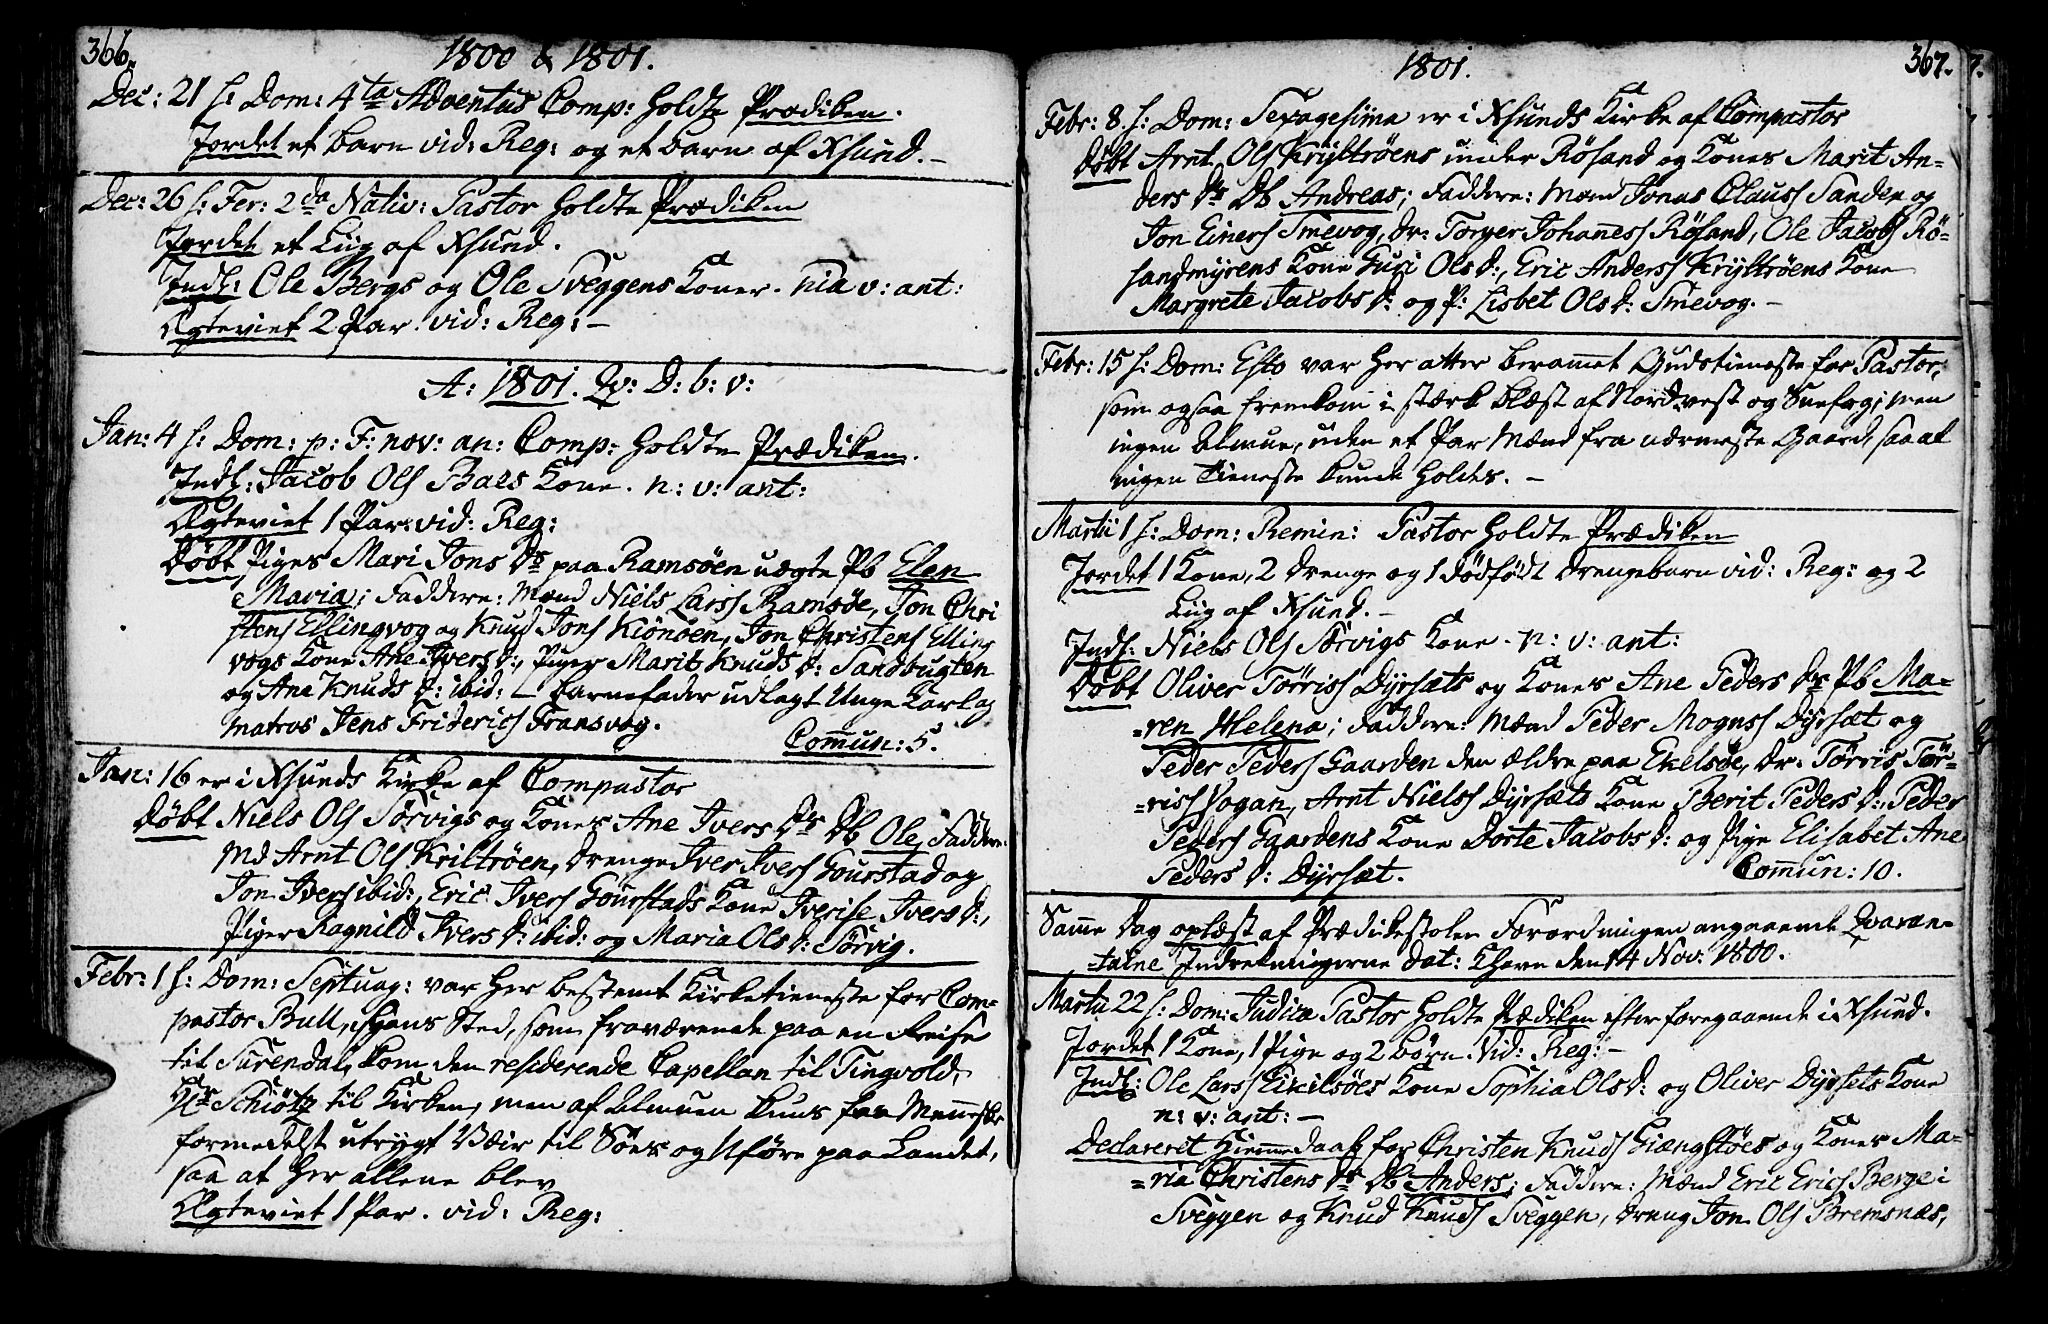 366.
1800 & 1801.
Dec: 21 s: Dom: 4ta Adventus Comp: holdte Prædiken.
Jordet et barn vid: Reg: og et barn af Xsund. –
Dec: 26 s: Fer: 2da Nativ: Pastor holdte Prædiken
Jordet et Liig af Xsund.
Indl: Ole Bergs og Ole Sveggens Koner. nia v: ant:
Ægteviet 2 Par. vid: Reg: –
A: 1801. Qv: D: b: v:
Jan: 4 s: Dom: p: F: nov: an: Comp: holdte Prædiken.
Indl: Jacob Ols Baes Kone. n: v: ant:
Ægteviet 1 Par. vid: Reg:
Døbt Piges Mari Jons Dr paa Ramsøen uægte Pb Elen
Maria; Faddere: Mænd Niels Larss Ramsøe, Jon Chri
stens Ellingvog og Knud Jons Kiönöen, Jon Christens Elling
vogs Kone Ane Ivers d:, Piger Marit Knuds d: Sandbugten
og Ane Knuds d: ibid: – barnefader udlagt Unge Karl og
Matros Jens Friderichs Fransvog.
Commun: 5.
Jan: 16 er i Xsunds Kirke af Compastor
døbt Niels Ols Sørvigs og Kones Ane Ivers Dr Db Ole, Faddere:
Md Arnt Ols Kriltrøen, drenge Iver Ivers Gourstad og
Jon Ivers ibid:, Eric Ivers Gourstads Kone Iverise Ivers d:,
Piger Ragnild Ivers d: ibid: og Maria Ols d: Sørvig.
Febr: 1 s: Dom: Septuag: var her bestemt Kirketieneste for Com-
pastor Bull, i hans Sted, som fraværende paa en Reise
til Surendal, kom den residerende Capellan til Tingvold,
Hr Schiötz til Kirken, men af Almuen kuns faa Mennesker
formedelst utrygt Veir til Söes og Uføre paa Landet,
saa at her allene blev
Ægteviet 1 Par. vid: Reg:
1801.
367.
Febr: 8. s: Dom: Sexagesima er i Xsunds Kirke af Compastor
døbt Arnt Ols Kryltröens under Rösand og Kones Marit An-
ders Dr Db Andreas; Faddere: Mænd Jonas Clauss Sanden og
Jon Einers Smevog, Dr: Torger Johaness Rösand, Ole Jacobs Rö-
sandmyrens Kone Guri Ols d:, Eric Anderss Kryltröens Kone
Margrete Jacobs d: og P: Lisbet Ols d: Smevog. –
Febr: 15 s: Dom: Esto var her atter beramet Gudstieneste for Pastor,
som ogsaa fremkom i stærk blæst af Nordvest og Snefog; men
ingen Almue, uden et Par Mænd fra nærmeste Gaard, saa at
ingen Tieneste kunde holdes. –
Martii 1 s: Dom: Remin: Pastor holdte Prædiken
Jordet 1 Kone, 2 drenge og 1 dødfødt drengebarn vid: Reg: og 2
Liig af Xsund. –
Indl: Niels Ols Sørvigs Kone. n: v: ant:
Døbt Oliver Törriss Dyrsæts og Kones Ane Peders Dr Pb Ma-
=ren Helena; Faddere: Mænd Peder Mognss Dyrsæt og
Peder Peders Gaarden den ældre paa Ekelsøe, Dr: Törris Tör-
=riss Vogan, Arnt Nielss Dyrsæts Kone Berit Peders d:, Peder
Peders Gaardens Kone Dorte Jacobs d: og Pige Elisabet Ane
Peders d: Dyrsæt.
Commun: 10.
Samme Dag oplæst af Prædikestolen Forordningen angaaende Qvaran-
=taine Indretningerne dat: Khavn den 14 Nov: 1800.
Martii 22 s: Dom: Judica Pastor holdte Prædiken efter foregaaende i Xsund.
Jordet 1 Kone, 1 Pige og 2 børn. vid: Reg: –
Indl: Ole Larss Eikelsöes Kone Sophia Ols d: og Oliver Dyrsets Kone
n: v: ant: –
Declareret Hiemmedaab for Christen Knuds Giengstöes og Kones Ma-
=ria Christens Dr Db Anders; Faddere: Mænd Eric Erics Berge i
Sveggen og Knud Knuds Sveggen, dreng Jon Ols Bremsnæs,